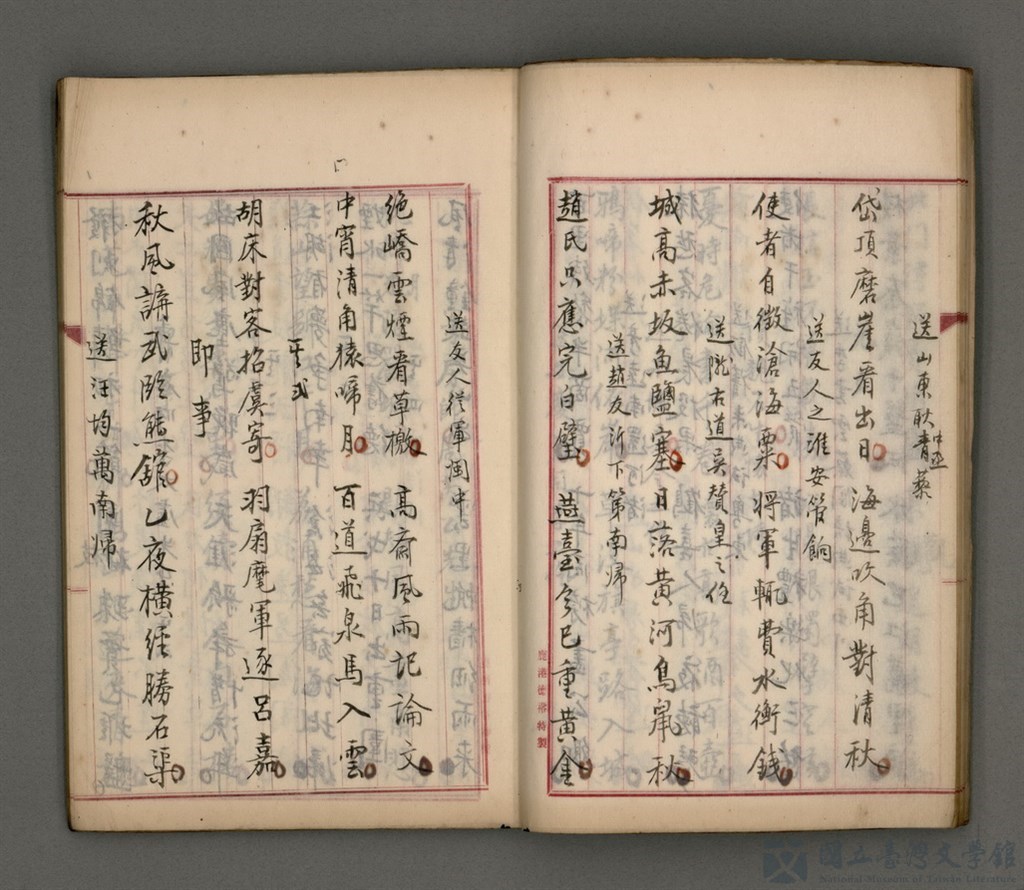 送山東耿青藜中丞
岱頂磨崖看出日 海邊吹角對清秋
送友人之淮安管餉
使者自徵滄海粟 將軍輒費水衡錢
送隴右道吳贊皇之任
城高赤坂魚鹽塞 日落黃河鳥鼠秋
送趙友沂下第南歸
趙氏只應完白璧 燕臺今已重黃金
鹿港德常特製
送友人從軍閩中
絕嶠雲煙看草檄 高齋風雨記論文
中宵清角猿啼月 百道飛泉馬入雲
其弍
胡床對客招虞寄 羽扇麾軍逐呂嘉
即事
秋風講武臨熊館 乙夜橫經勝石渠
送汪均萬南歸
國立臺灣文學館
National Museum of Taiwan Literature